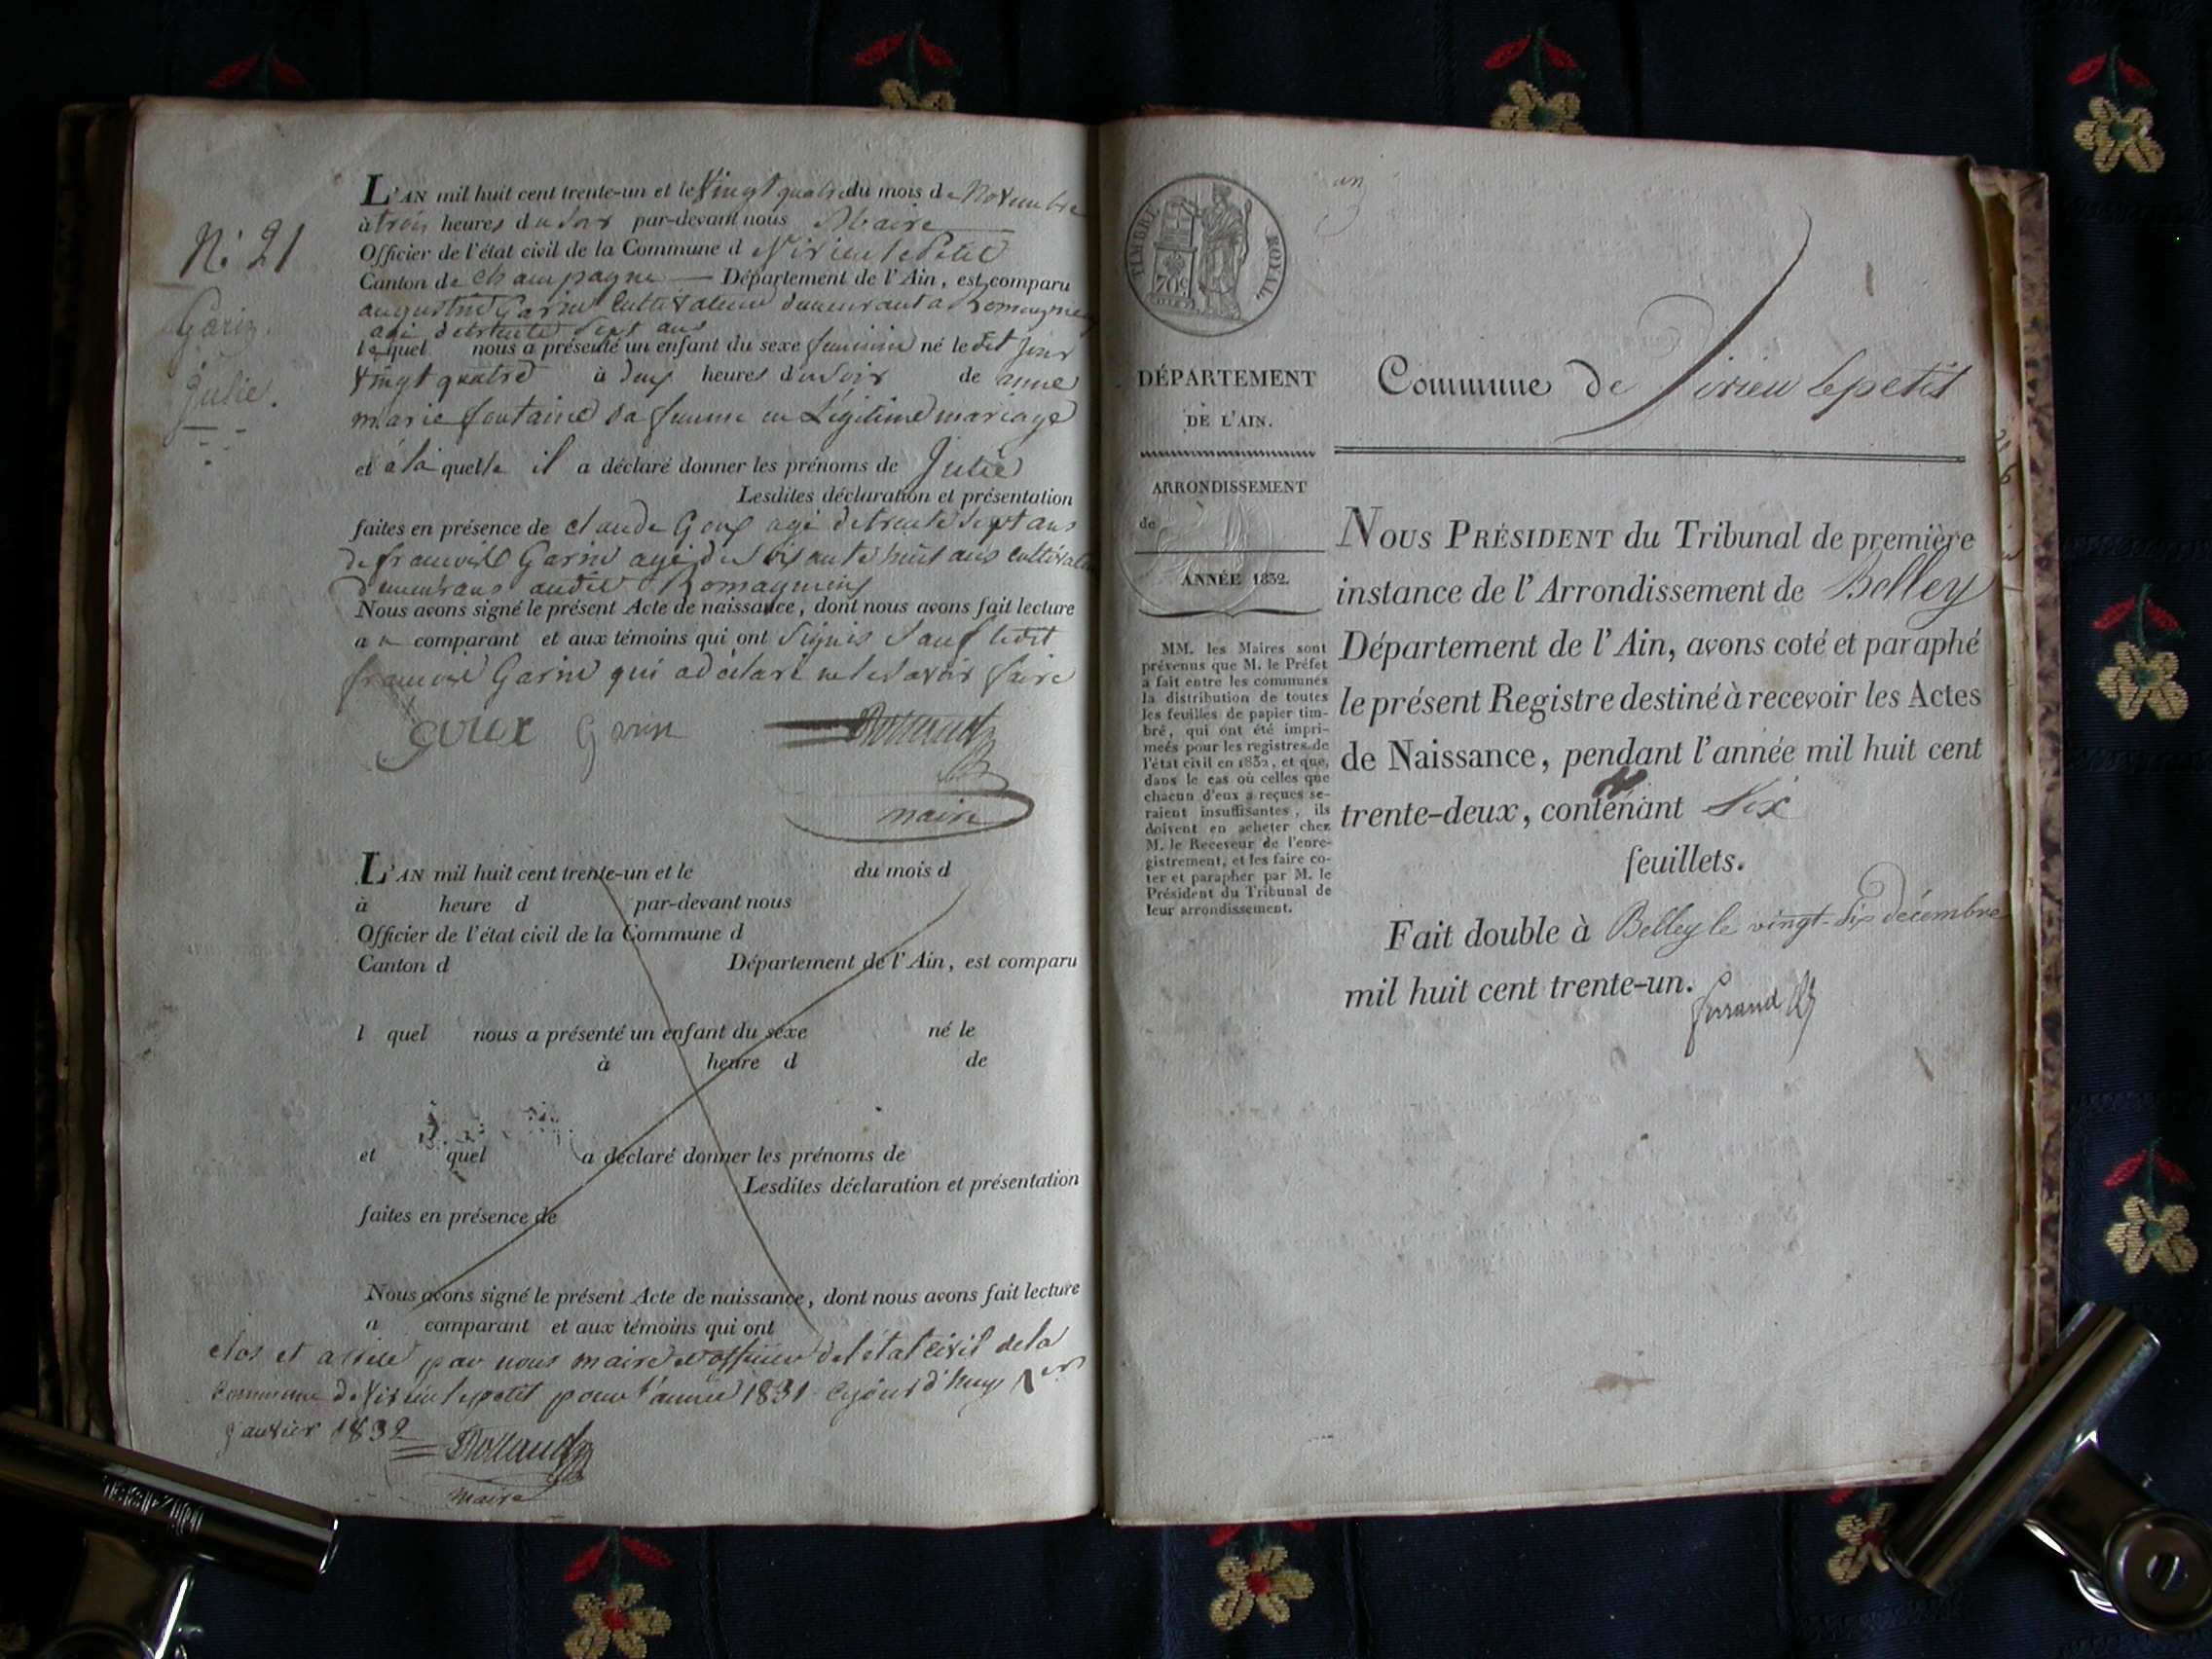 N° 21
Garin
Julie.
L'AN mil huit cent trente-un et le Vingt quatre du mois de Novembre
à trois heures du soir par-devant nous Maire
Officier de l'état civil de la Commune d Virieu le Petit
Canton de Champagne Département de l'Ain, est comparu
augustin Garin Cultivateur demeurant a Romagnieu
agé de trente sept ans
lequel nous a présenté un enfant du sexe feminin né le dit jour
vingt quatre à deux heures du soir de anne
marie fontaine sa femme en Légitime mariage
et à la quelle il a déclaré donner les prénoms de Julie
Lesdites déclaration et présentation
faites en présence de claude Goux agé de trente sept ans
de francois Garin agé de soixante huit ans cultivateurs
demeurans audit Romagnieu
Nous avons signé le présent Acte de naissance, dont nous avons fait lecture
au comparant et aux témoins qui ont signés sauf ledit
francois Garin qui a déclaré ne le savoir faire
goux Garin
maire
L'AN mil huit cent trente-un et le du mois d
à heure d par-devant nous
Officier de l'état civil de la Commune d
Canton d Département de l'Ain, est comparu
l quel nous a présenté un enfant du sexe né le
à heure d de
et quel a déclaré donner les prénoms de
Lesdites déclaration et présentation
faites en présence de
Nous avons signé le présent Acte de naissance, dont nous avons fait lecture
a comparant et aux témoins qui ont
clos et arrêté par nous maire et officier de l'état civil de la
commune de Virieu le petit pour l'année 1831 cejourd'huy 1er
janvier 1832
maire
TIMBRE ROYAL
70c
DÉPARTEMENT
DE L'AIN.
ARRONDISSEMENT
de
ANNÉE 1832.
MM. les Maires sont
prévenus que M. le Préfet
a fait entre les communes
la distribution de toutes
les feuilles de papier tim-
bré, qui ont été impri-
meés pour les registres de
l'état civil en 1832, et que,
dans le cas où celles que
chacun d'eux a reçues se-
raient insuffisantes, ils
doivent en acheter chez
M. le Receveur de l'enre-
gistrement, et les faire co-
ter et parapher par M. le
Président du Tribunal de
leur arrondissement.
Commune de Virieu le petit
NOUS PRÉSIDENT du Tribunal de première
instance de l'Arrondissement de Belley
Département de l'Ain, avons coté et paraphé
le présent Registre destiné à recevoir les Actes
de Naissance, pendant l'année mil huit cent
trente-deux, contenant Six
feuillets.
Fait double à Belley le vingt-six décembre
mil huit cent trente-un.